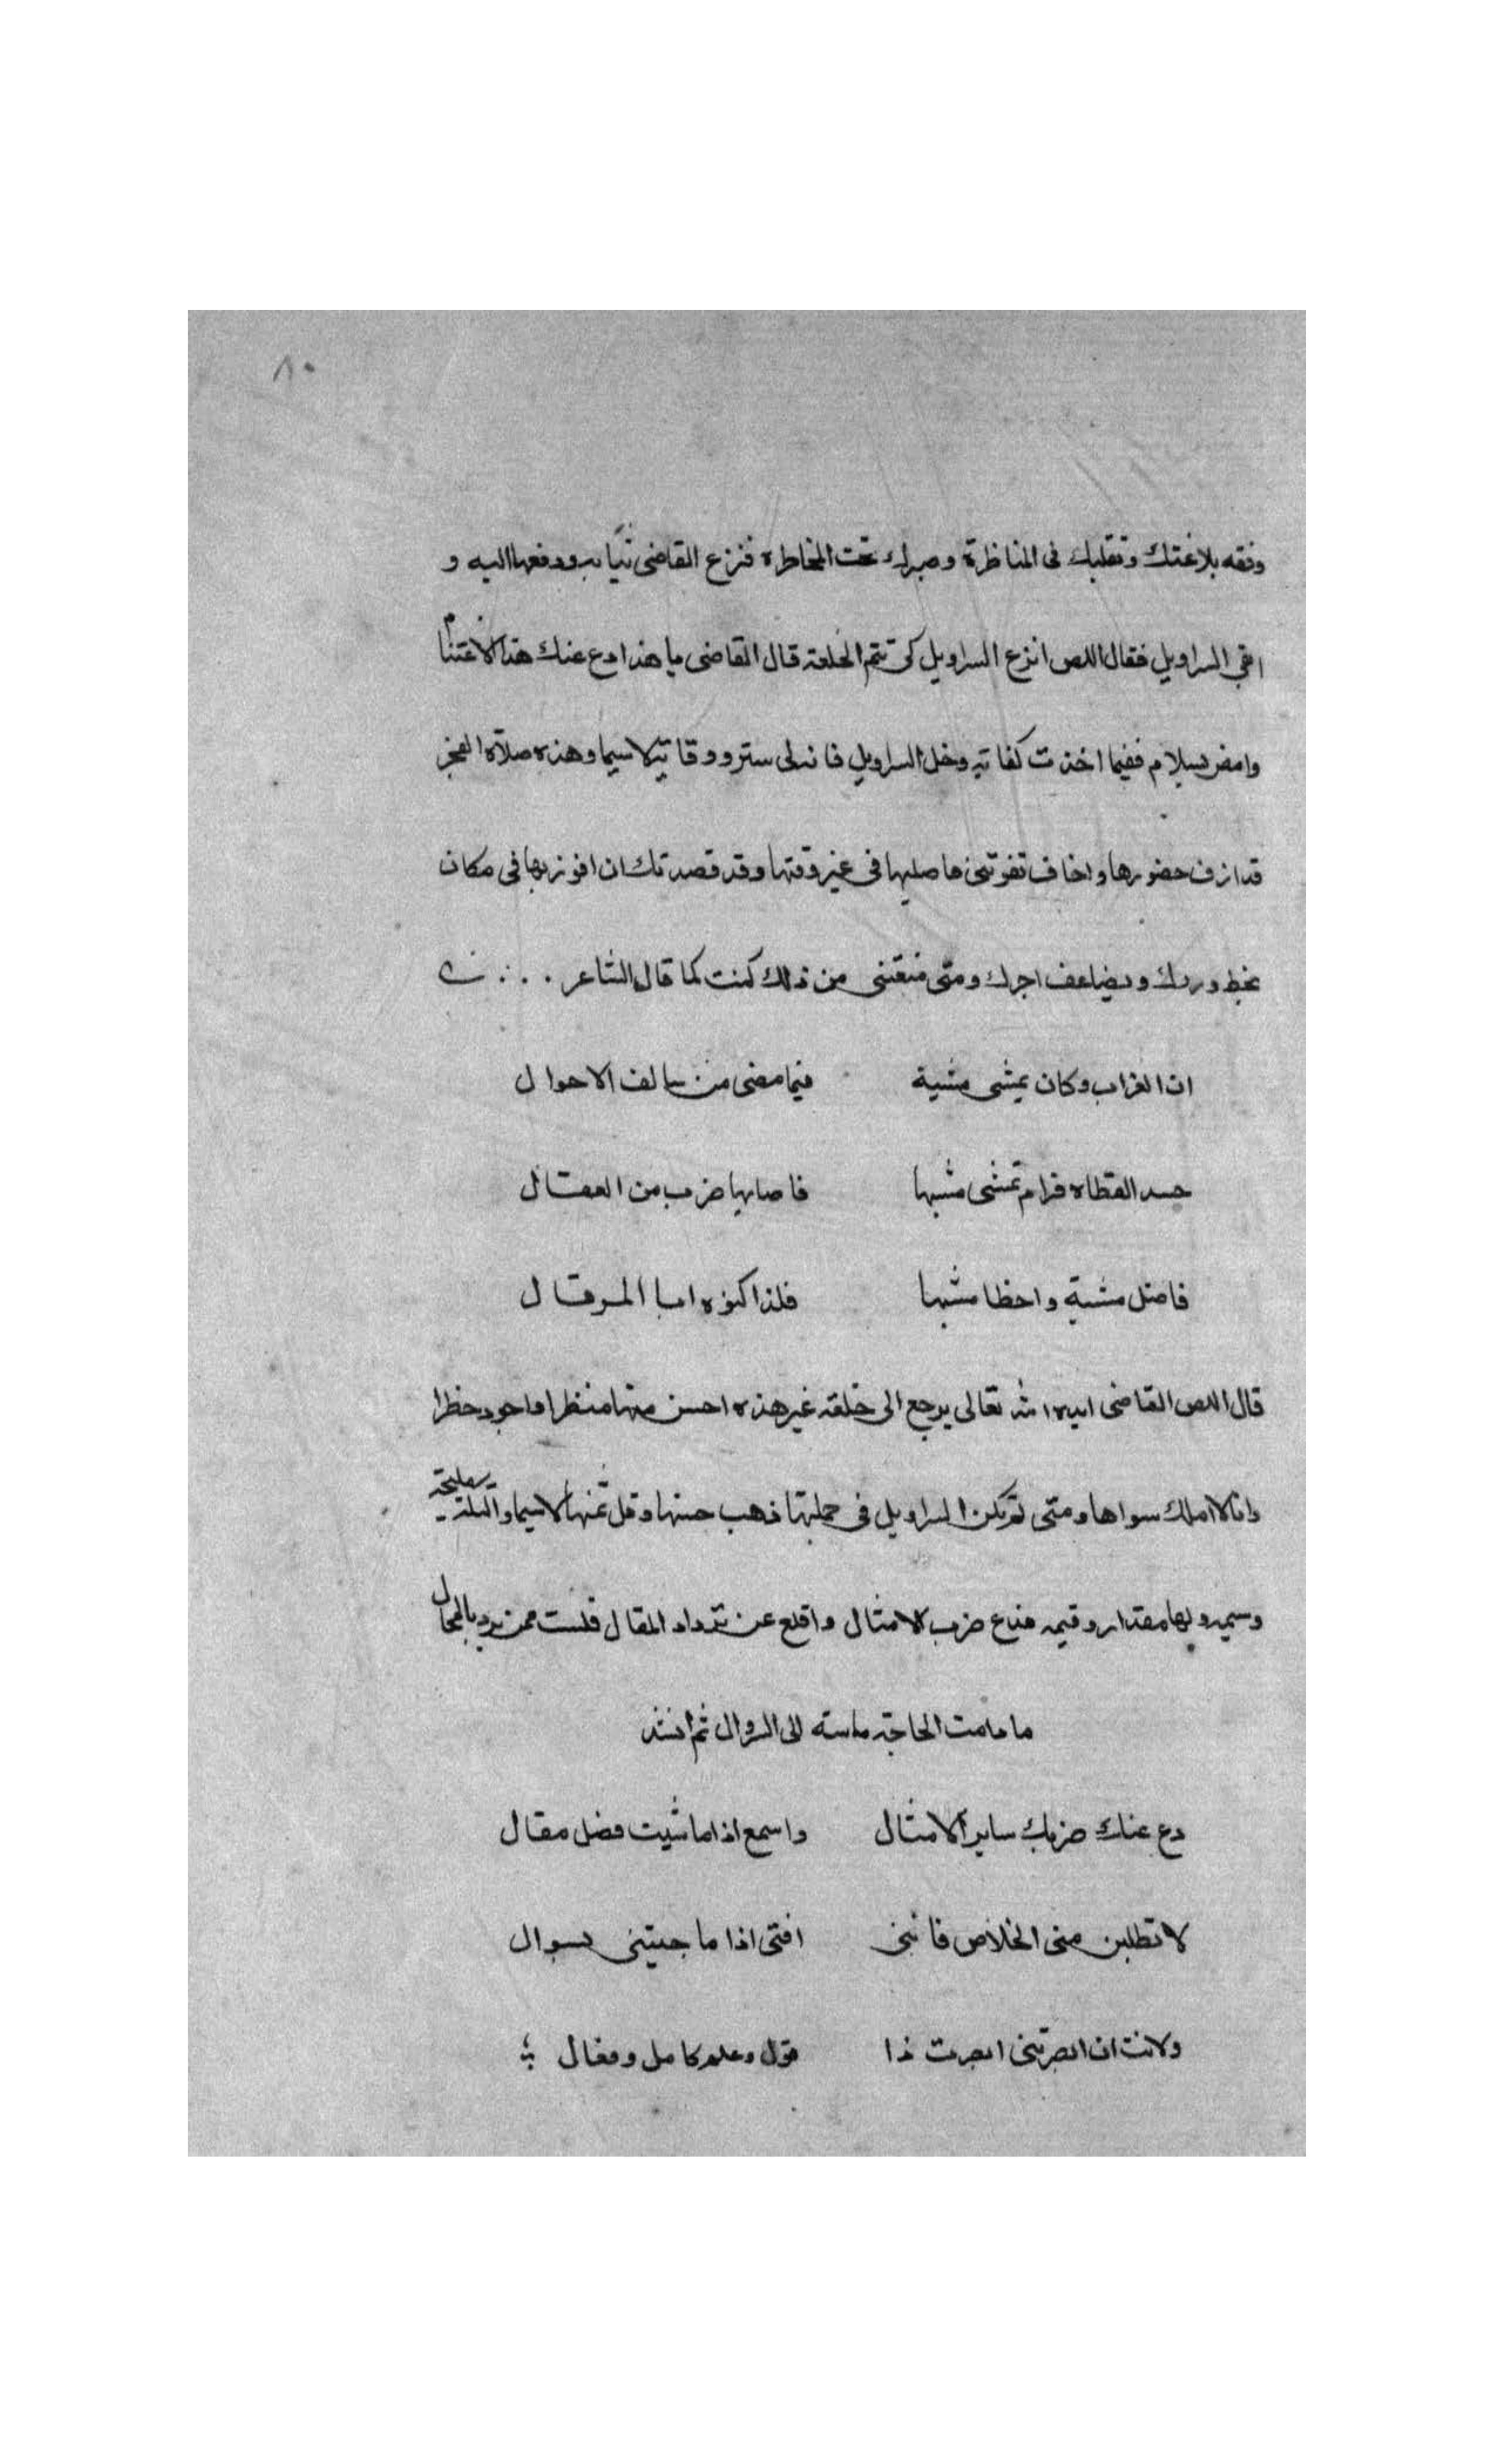 ٨٠
وفقه بلاغتك وتقلبك فى المناظرة وصبرك تحت المخاطره فنزع القاضى ثيابه ودفعها اليه و
ابقي السراويل فقال اللص انزع السراويل كى تتم الخلعة قال القاضى يا هذا دع عنك هذا الاغتنام
وامض بسلام ففيما اخذت كفاية وخل السراويل فانه لى ستر ووقاية لاسيما وهذه صلاة الفجر
قد ازف حضورها واخاف تفوتنى فاصليها فى غير وقتها وقد قصدتك ان افوز بها فى مكان
يحط وزرك ويضاعف اجرك ومتى منعتنى من ذلك كنت كما قال الشاعر
ان الغراب وكان يمشى مشية فيما مضى من سالف الاحوال
حسد القطاه فرام تمشى مشيها فاصابها ضرب من العقال
فاضل مشية واخطا مشيها فلذا كنوه ابا المرقال
قال اللص القاضى ايده الله تعالى يرجع الى خلعة غير هذه احسن منها منظرا واجود خطرا
وانا لا املك سواها ومتى لم تكن السراويل فى جملتها ذهب حسنها وقل ثمنها لاسيما والتكة مليحة
وسيم ولها مقدار وقيمه فدع ضرب الامثال واقلع عن ترداد المقال فلست ممن يرد بالمحال
ما دامت الحاجة ماسة الى السروال ثم انشد
دع عنك ضربك ساير الامثال واسمع اذا ما شيت فضل مقال
لا تطلبن منى الخلاص فاننى افتى اذا ما جيتنى بسوال
ولانت ان ابصرتنى ابصرت ذا قول وعلم كامل وفعال